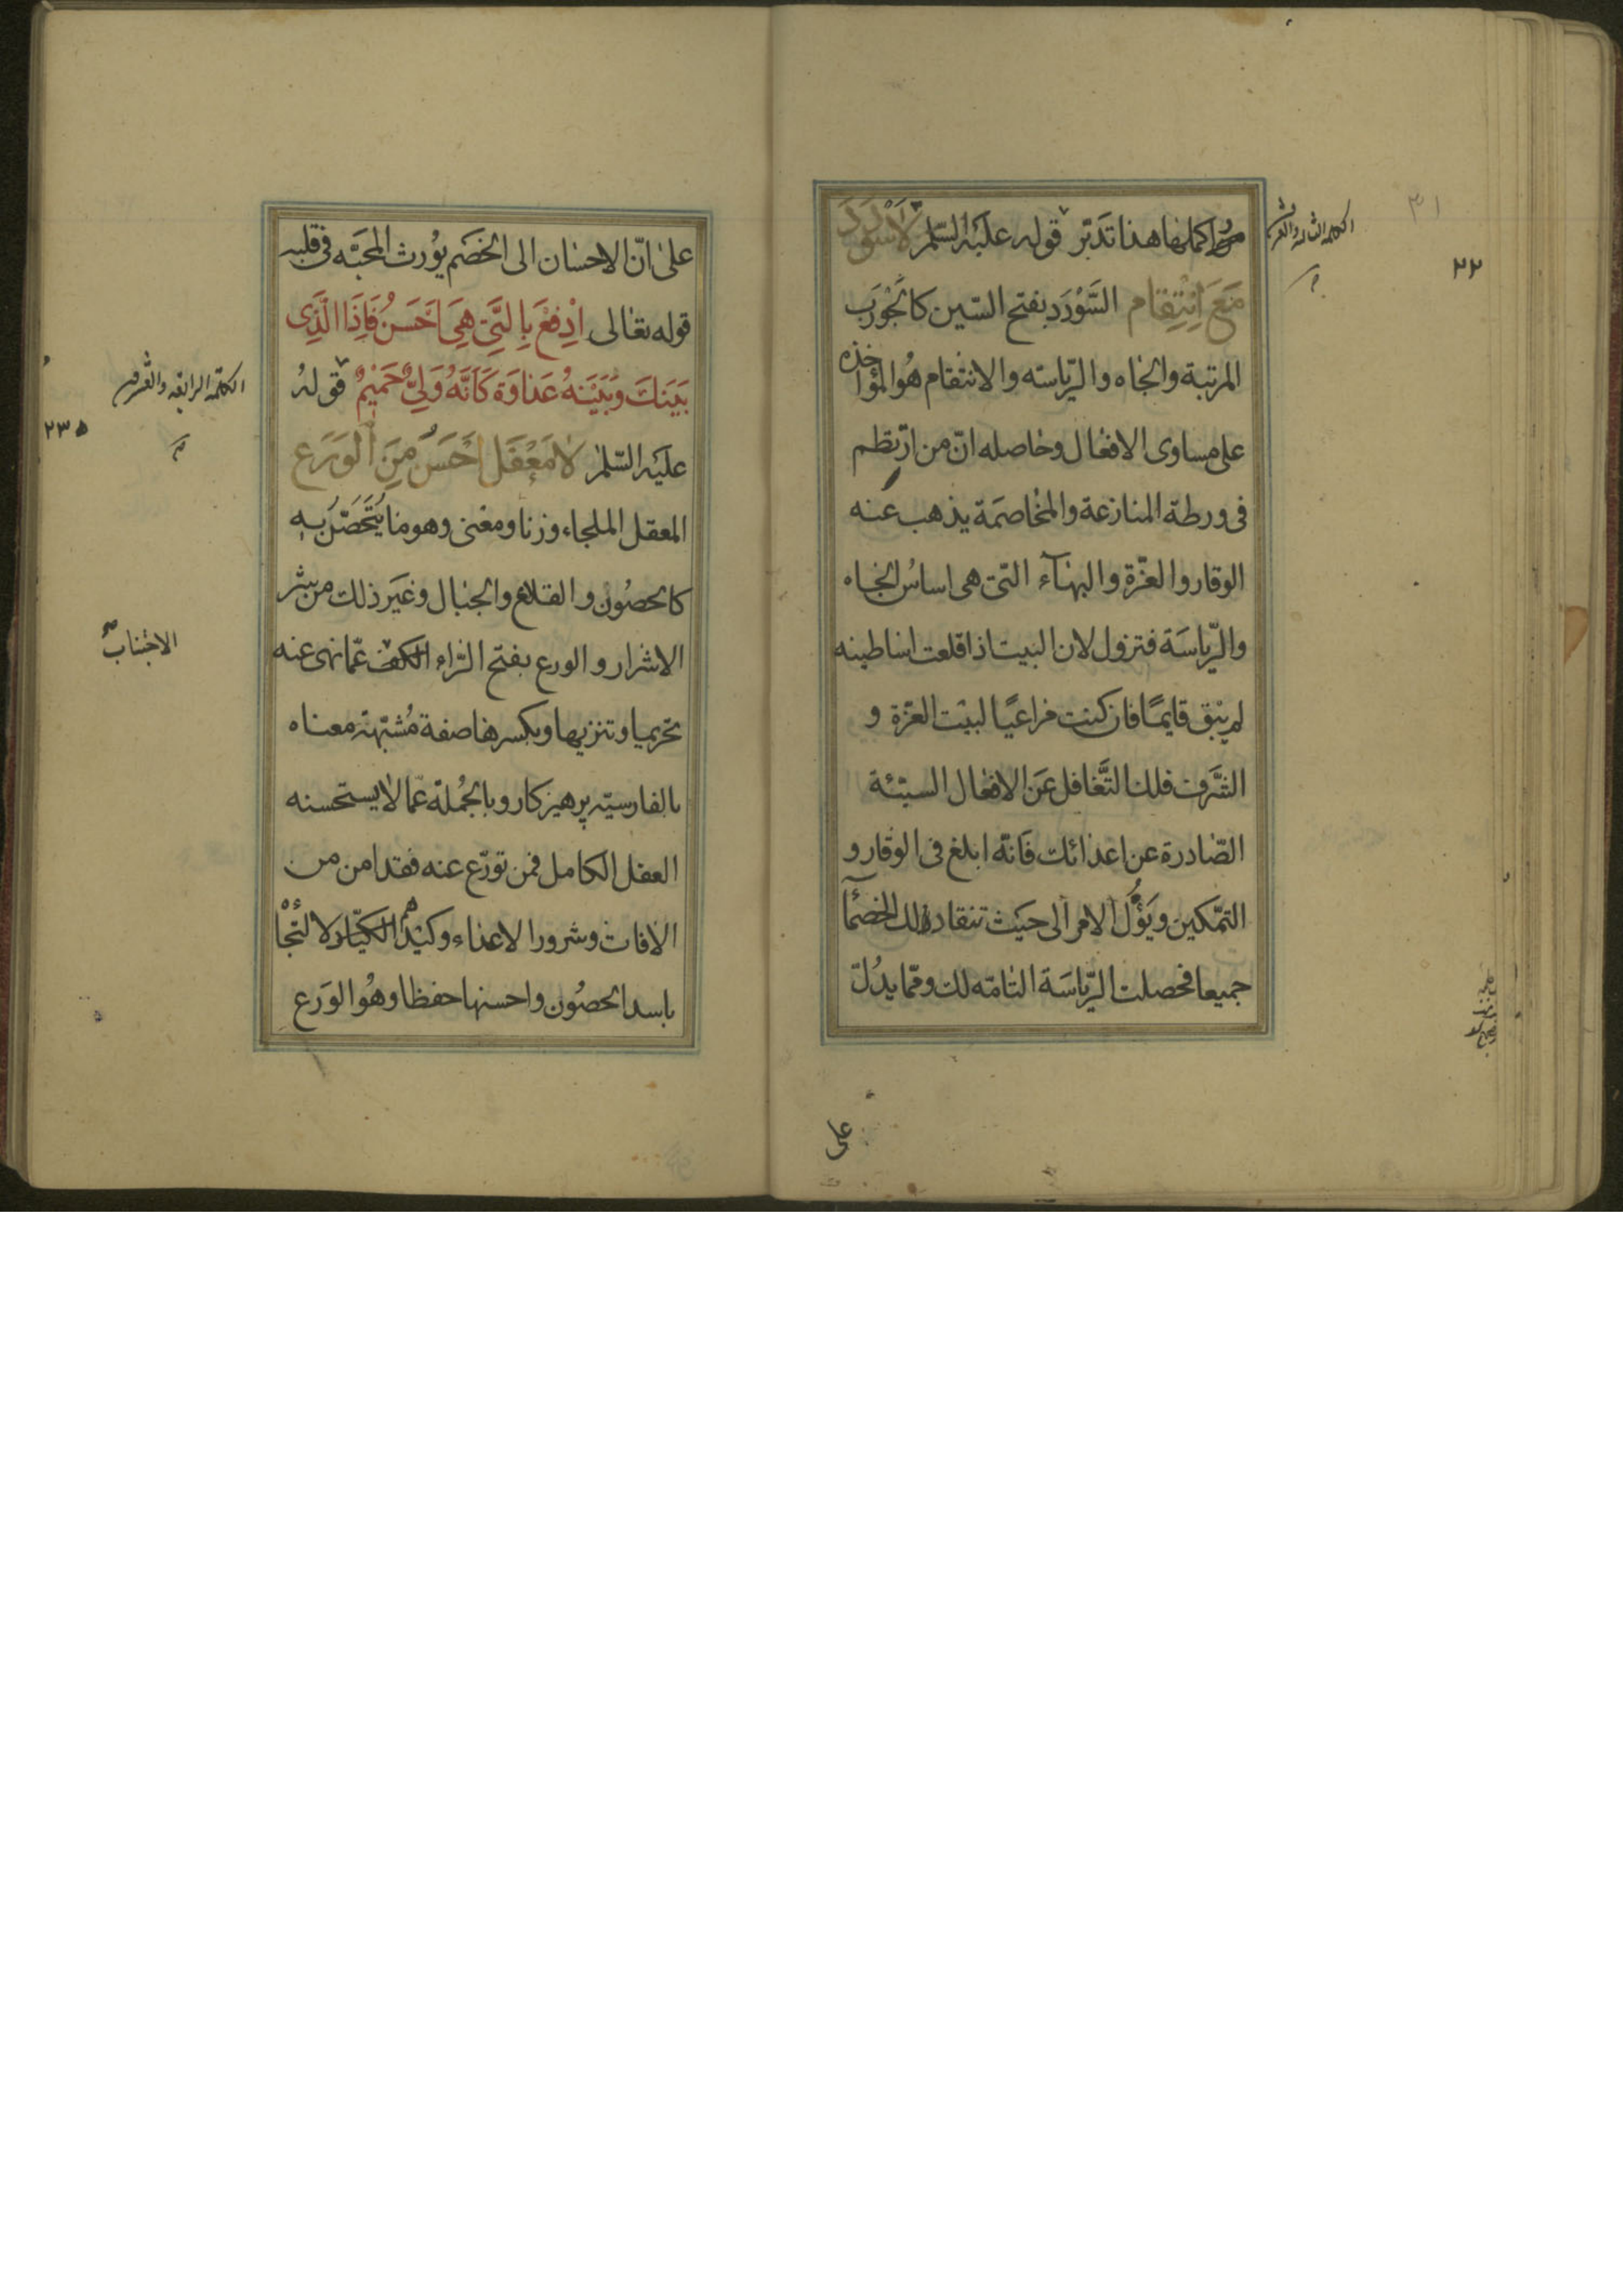 اكملها هذا تدبّر قوله عليه السّلم لَا سُؤْدَدَ
مَعَ اِنْتِقٰام السَّوْرَد بفتح السّين كالجَوْرَب
المرتبة والجاه والرّياسته والانتقام هُوا المؤاخذه
على مساوى الافعٰال وحاصله انّ من ارتطم
فى ورطة المنازعة والمخاصَمَة يذهب عنه
الوقار والعزّة والبهاآء التى هى اساسُ الجاه
والرّياسَة فتزول لان البيت اذا قلعت اساطينه
لم يَبْق قايمًا فان كنت مراعيًا لبيْت العزّة و
الشّرف فلك التَّغافل عَن الافعٰال السيّئة
الصّادرة عن اعدائك فانّه ابلغ فى الوقار و
التمّكين ويَؤُل الامر الى حَيث تنقاد لك الخصمآ
جميعا فحصلت الرّياسَة التامّه لك وممّا يدُلّ
على
الكلمه الثالثه والعشرين
٣١
٢٢
علىٰ انّ الاحسٰان الى الخصَم يوُرث المحبّه فى قلبه
قوله تعٰالى اِدْفَعْ بِالَّتى هِىَ اَحْسَنُ فَاِذَا الَّذِى
بَيْنَكَ وَبَيْنَهُ عَدٰاوَة كَاَنَّهُ وَلِىٌّ حَمْيمٌ قوله
عليَه السّلم لٰا مَعْقَل اَحْسَن مِنَ اَلْوَرَع
المعقل الملجاء وزنا ومعنى وهو ما يُتَحَصّن به
كالحصُون والقلاع والجبال وغيَر ذلك من شر
الاشرار والورع بفتح الرّاء الكف عمّا نهى عنه
تحريما وتنزيها وبكسرها صفة مُشبّهة معناه
بالفارسيّه پرهيزكار وبالجُملة عمّا لا يستحسنه
العقل الكامل فمن تورّع عنه فقد امن من
الافات وشرور الاعداء وكيْد الكيّاد ولا التجأ
باسد الحصُون واحسنها حفظا وهُوا الوَرع
الكلمة الرابعه والعشرون
٢٣٥
الاجتناب